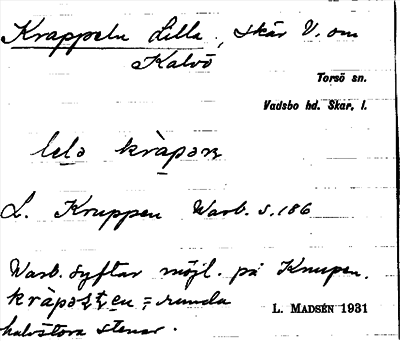 Krappeln Lilla, skär V. om
Kalvö
Torsö sn.
Vadsbo hd. Skar. l.
lelə kràpən
L. Kruppen Warb. s. 186
Warb. syftar möjl. på Knupen.
kràpəs = runda
L. MADSÉN 1931
halvstora stenar.